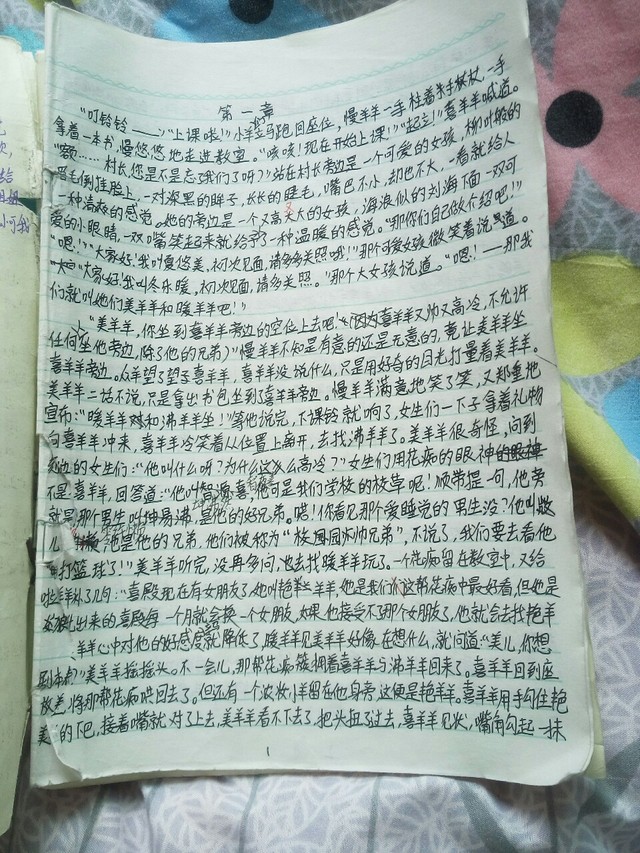 第一章
"叮铃铃——""上课啦!"小羊立马跑回座位,慢羊羊一手柱着羊手杖杖,一手
拿着一本书,慢悠悠地走进教室。"咳咳!现在开始上课!""起立!"喜羊羊喊道。
"额……村长,您是不是忘了我们了呀?"站在村长旁边是一个可爱的女孩,柳叶般的
眉毛倒挂脸上,一对漆黑的眸子,长长的睫毛,嘴巴不小,却也不大,一看就给人
一种清爽的感觉。她的旁边是一个又高又大的女孩,海浪似的刘海下面一双可
爱的小眼睛,一双嘴笑起来就给了一种温暖的感觉。"那你们自己做个介绍吧!"
"嗯!""大家好!我叫夏悠美,初次见面,请多多关照哦!"那个可爱女孩微笑着说道。
"大家好!我叫冬乐暖,初次见面,请多关照。"那个大女孩说道。"嗯!——那我
们就叫她们美羊羊和暖羊羊吧!"
"美羊羊,你坐到喜羊羊旁边的空位上去吧!"(因为喜羊羊又帅又高冷,不允许
任何坐他旁边,除了他的兄弟)慢羊羊不知是有意的还是无意的,竟让美羊羊坐
喜羊羊旁边。众羊望了望喜羊羊,喜羊羊没说什么,只是用好奇的目光打量着美羊羊。
美羊羊二话不说,只是拿出书包坐到了喜羊羊旁边。慢羊羊满意地笑了笑,又郑重地
宣布:"暖羊羊和沸羊羊坐!"等他说完,下课铃就响了,女生们一下子拿着礼物
向喜羊羊冲来,喜羊羊冷笑着从位置上离开,去找沸羊羊了。美羊羊很奇怪,问到
旁边的女生们:"他叫什么呀?为什么这么高冷?"女生们用花痴的眼神
看着喜羊羊,回答道:"他叫智源喜,他可是我们学校的校草呢!顺带提一句,他旁
就是那个男生叫坤易沸,是他的好兄弟。喏!你看见那个爱睡觉的男生没?他叫
儿,他是他的兄弟,他们被称为"校园帅兄弟",不说了,我们要去看他
打篮球了!"美羊羊听完,没再多问,也去找暖羊羊玩了。一个花痴留在教室中,又给
补了几句:"喜殿现在有女朋友,她叫艳羊羊,他是我们这帮花痴中最好看,但她是
出来的喜殿每一个月就会换一个女朋友,如果他接受不了那个女朋友了,他就会去找艳羊
羊心中对他的好感度就降低了,暖羊羊见美羊羊好像在想什么,就问道:"美儿,你想
美羊羊摇摇头。不一会儿,那帮花痴簇拥着喜羊羊与沸羊羊回来了。喜羊羊回到座
将那帮花痴哄回去了。但还有一个浓妆小羊留在他身旁,这便是艳羊羊。喜羊羊用手勾住艳
的下巴,接着嘴就对了上去,美羊羊看不下去了,把头扭了过去,喜羊羊见状,嘴角勾起一抹
1